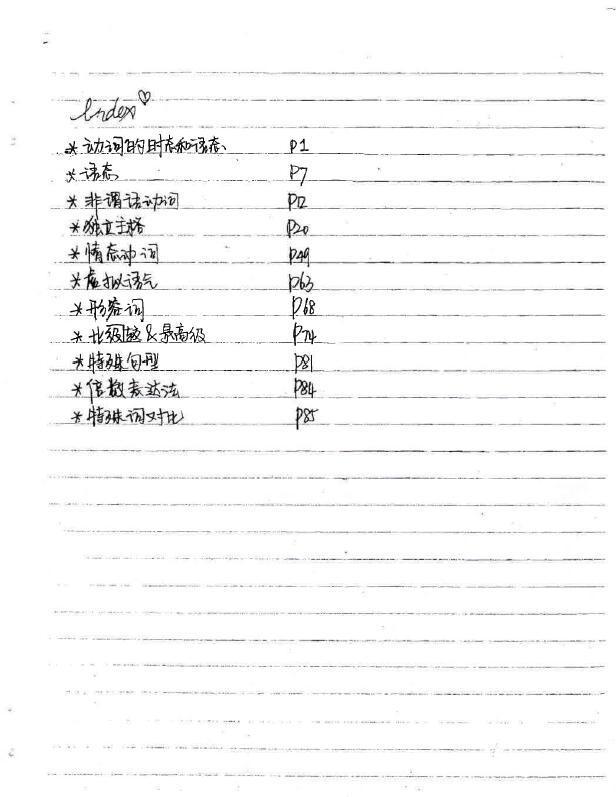 Index♡
* 动词的时态和语态 P1
* 语态 P7
* 非谓语动词 P12
* 独立主格 P20
* 情态动词 P49
* 虚拟语气 P63
* 形容词 P68
* 比较级 & 最高级 P74
* 特殊句型 P81
* 倍数表达法 P84
* 特殊词对比 P85